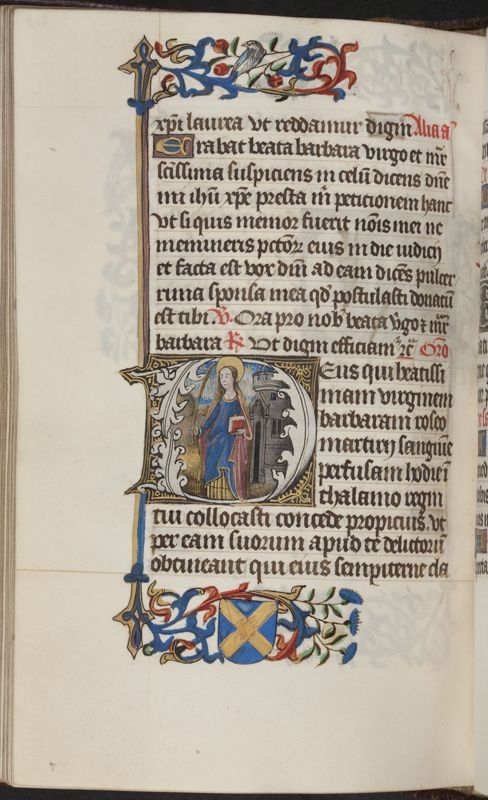 xp̄i laurea vt reddamur digni Alia aͣ
Erabat beata barbara virgo et mr̄
scissima suspiciens in celū dicens dn̄e
mi ihū xp̄e presta m̄ peticionem hanc
vt si quis memor fuerit nōis mei ne
memineris pctōꝝ eius in die iudicij
et facta est vox dn̄i ad eam dicēs pulcer
rima sponsa mea qd̄ postulasti donatū
est tibi V̄. Ora pro nob̄ beata v̓go ⁊ mr̄
barbara R̄ Vt digni efficiam̓ ⁊c̄ Oro
Deus qui beatissi
mam virginem
barbaram roseo
martirij sanguīe
perfusam hodierī
thalamo regni
tui collocasti concede propicius vt
per eam suorum apud te delictorū
obtineant qui eius sempiterne cla